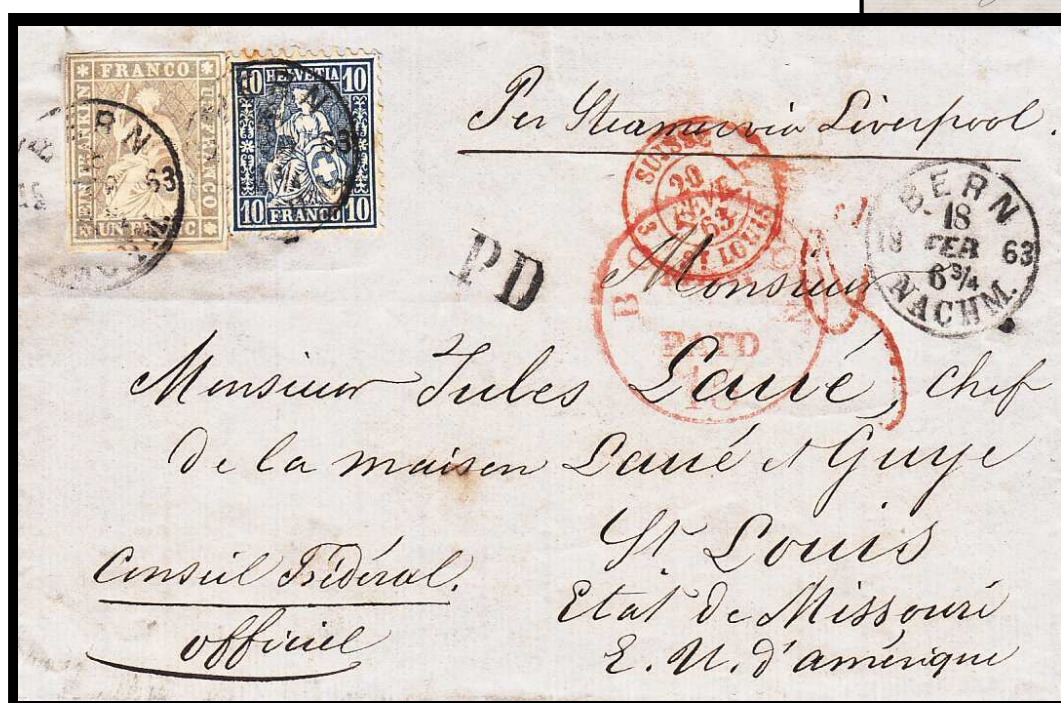 FRANCO
FREI FRANKEN
UN FRANCO
UN FRANC
10 HELVETIA 10
10 FRANCO 10
BERN
63
NACHM.
Per Steamer via Liverpool.
SUISSE
20
FEVR.
63
ST LOUIS
BERN
18 18 63
FEB
6 3/4
NACHM.
PD
BOS
PAID
Monsieur
Monsieur Jules Laué, Chef
de la maison Laué et Guye
St Louis
Etat de Missouri
E. U. d'amérique
Conseil Fédéral.
officiel